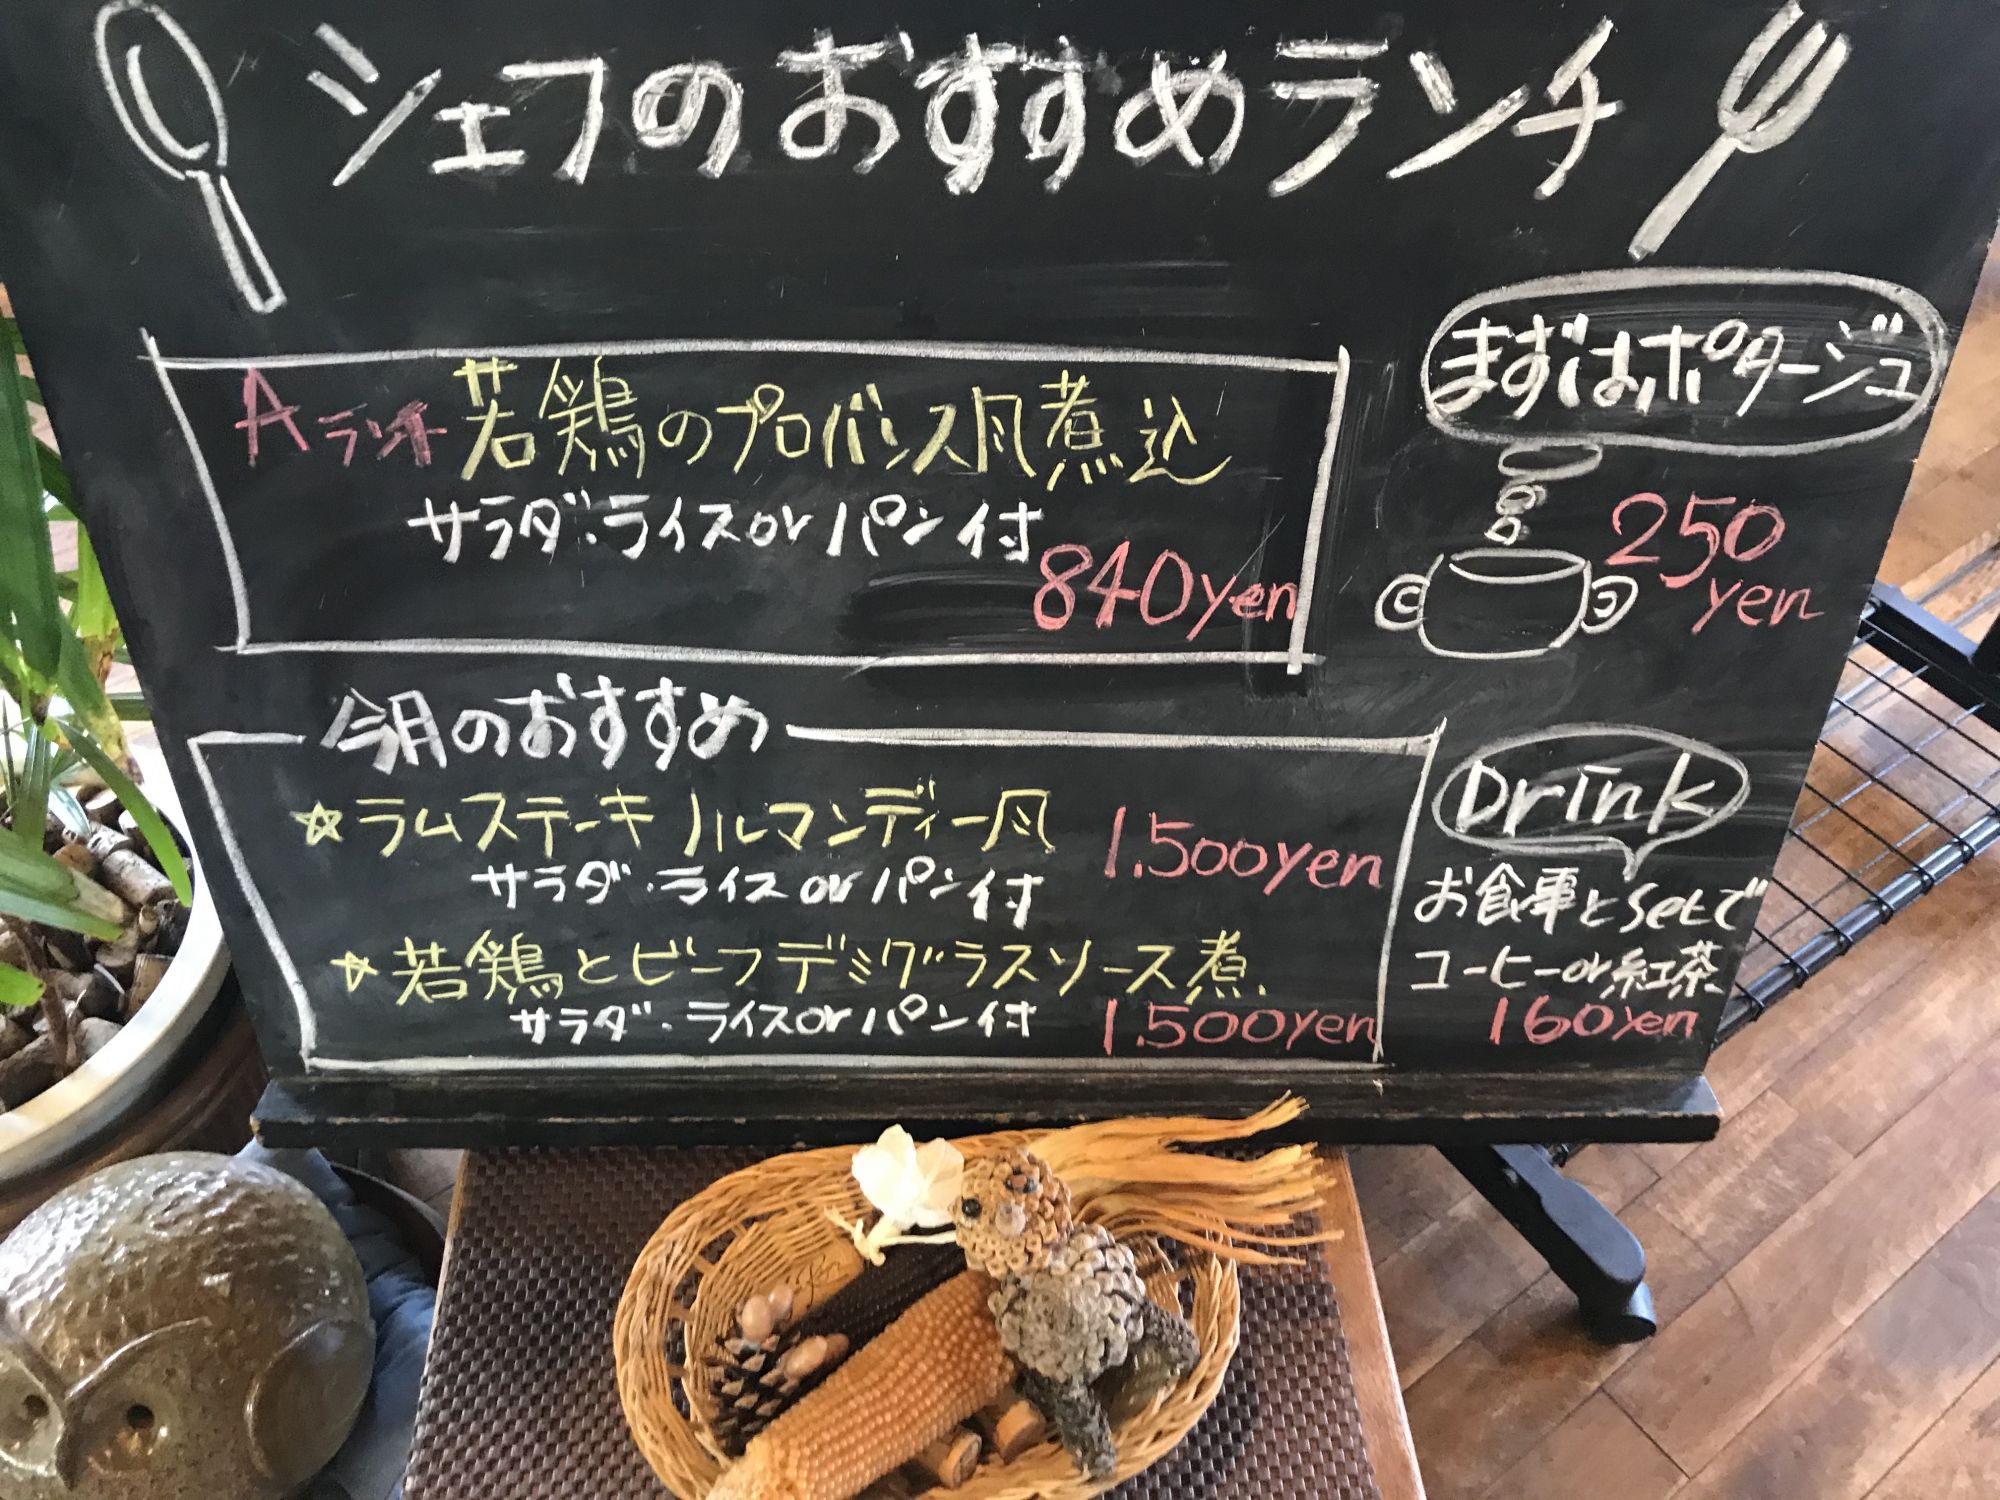 シェフのおすすめランチ
Aランチ 若鶏のプロバンス風煮込
サラダ・ライスorパン付
840yen
まずはポタージュ
250
yen
今月のおすすめ
☆ラムステーキノルマンディー風
1.500yen
サラダ・ライスorパン付
☆若鶏とビーフデミグラスソース煮.
サラダ・ライスorパン付
1.500yen
Drink
お食事とsetで
コーヒーor紅茶
160yen